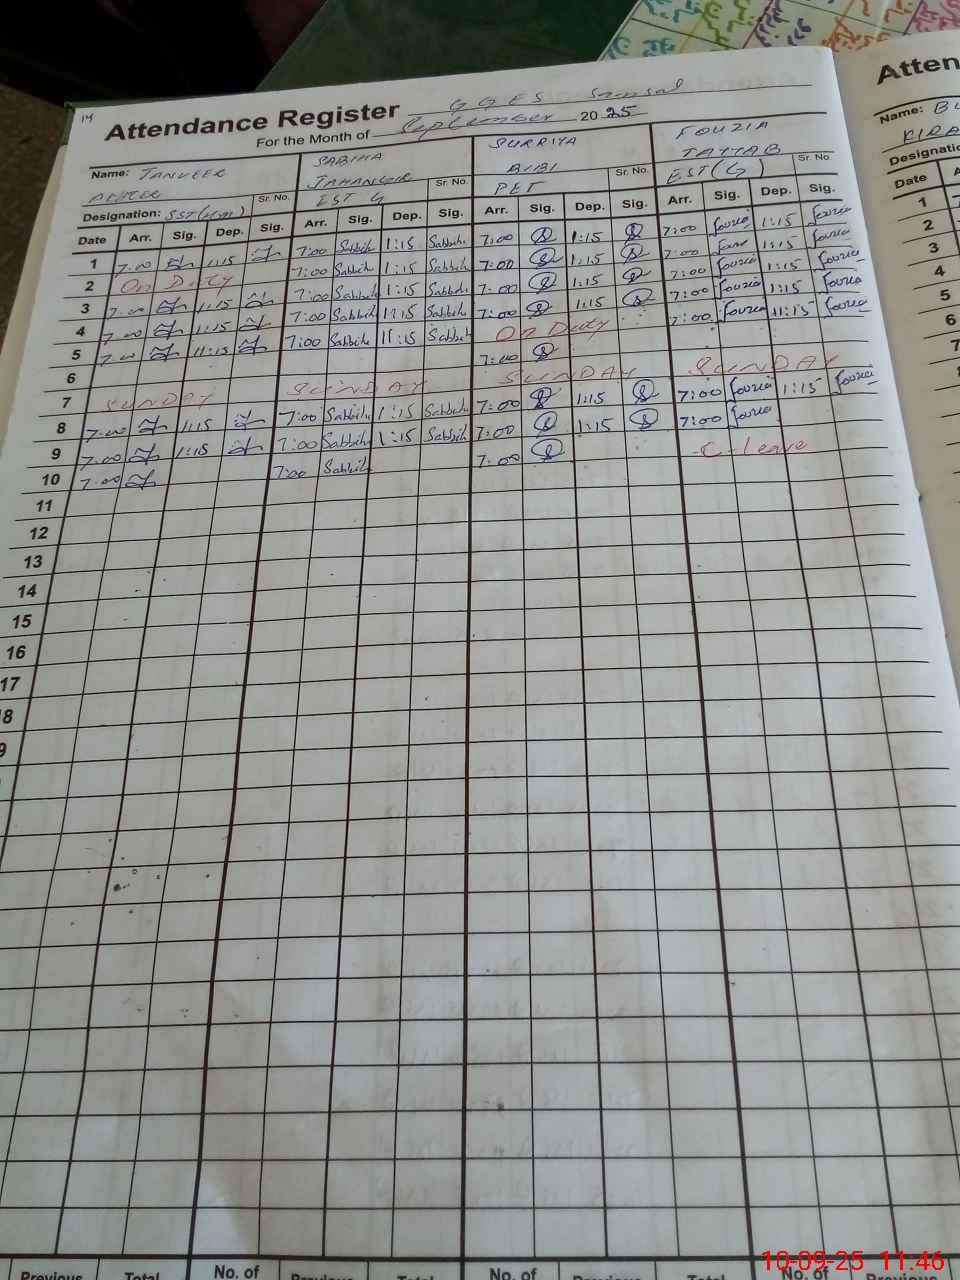 14
Attendance Register GGES Sansad
For the Month of September 2025
Name: TANVEER SABIHA SURRIYA FOUZIA
JAHANGIR Sr. No. BIBI Sr. No. TAYYAB Sr. No.
Designation: SST(H.M) Sr. No. EST G PET EST(G)
Date Arr. Sig. Dep. Sig. Arr. Sig. Dep. Sig. Arr. Sig. Dep. Sig. Arr. Sig. Dep. Sig.
1 7:00 1:15 7:00 Sabbih 1:15 Sabbih 7:00 1:15 7:00 fouzia 1:15 fouzia
2 On Duty 7:00 Sabbih 1:15 Sabbih 7:00 1:15 7:00 fouzia 1:15 fouzia
3 7:00 1:15 7:00 Sabbih 1:15 Sabbih 7:00 1:15 7:00 fouzia 1:15 fouzia
4 7:00 1:15 7:00 Sabbih 1:15 Sabbih 7:00 1:15 7:00 fouzia 1:15 fouzia
5 7:00 11:15 7:00 Sabbih 11:15 Sabbih On Duty 7:00 fouzia 11:15 fouzia
6 7:00
7 SUNDAY SUNDAY SUNDAY SUNDAY
8 7:00 1:15 7:00 Sabbih 1:15 Sabbih 7:00 1:15 7:00 fouzia 1:15 fouzia
9 7:00 1:15 7:00 Sabbih 1:15 Sabbih 7:00 1:15 7:00 fouzia
10 7:00 7:00 Sabbih 7:00 C-leave
11
12
13
14
15
16
17
18
9
Previous Total No. of Previous Total No. of Previous Total No. of Previous
Atten
Name:
Designatio
Date
1
2
3
4
5
6
7
10-09-25 11:46